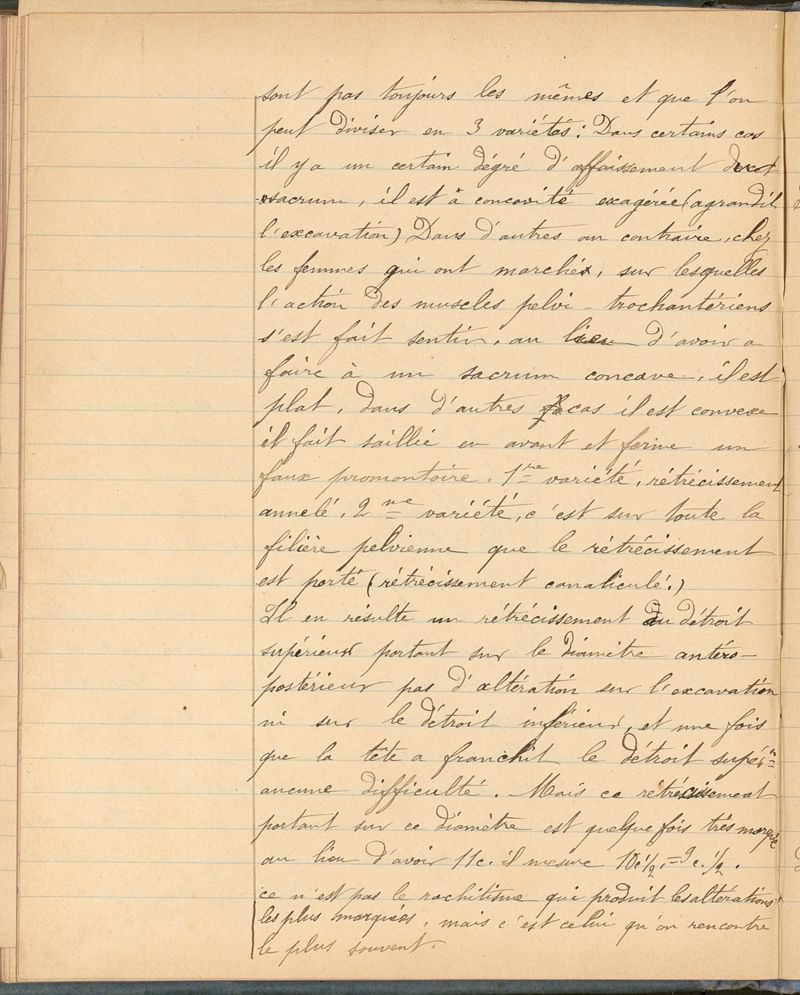 sont pas toujours les mêmes et que l'on
peut diviser en 3 variétés : Dans certains cas
il y a un certain dégré d'affaissement
sacrum, il est à concavité exagérée (agrandit
l'excavation) Dans d'autres au contraire, chez
les femmes qui ont marché, sur lesquelles
l'action des muscles pelvi-trochantériens
s'est fait sentir, au lieu d'avoir a
faire à un sacrum concave, il est
plat, dans d'autres cas il est convexe
il fait saillie en avant et forme un
faux promontoire. 1re variété, rétrécissement
annelé, 2me variété, c'est sur toute la
filière pelvienne que le rétrécissement
est porté (rétrécissement canaliculé.)
Il en résulte un rétrécissement du détroit
supérieur portant sur le diamètre antéro-
postérieur pas d'altération sur l'excavation
ni sur le détroit inférieur, et une fois
que la tête a franchit le détroit supér
aucune difficulté. Mais ce rétrécissement
portant sur ce diamètre est quelque fois très marqué
au lieu d'avoir 11c. il mesure 10c 1/2, = 9c. 1/2.
ce n'est pas le rachitisme qui produit les altérations
les plus marquées, mais c'est celui qu'on rencontre
le plus souvent.